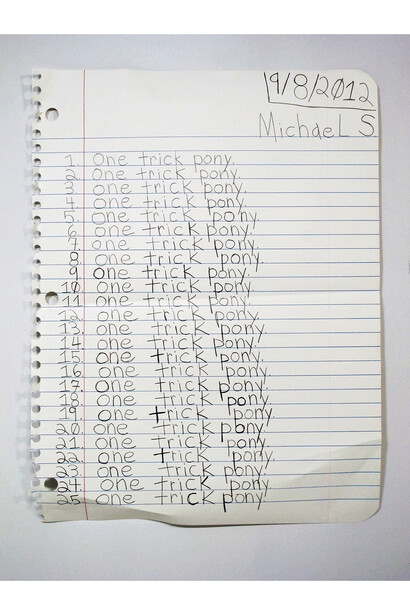 9/8/2012
Michael S.
1. One trick pony.
2. One trick pony.
3. One trick pony.
4. One trick pony.
5. One trick pony.
6. One trick pony.
7. One trick pony.
8. One trick pony.
9. One trick pony.
10. One trick pony.
11. One trick pony.
12. One trick pony.
13. One trick pony.
14. One trick pony.
15. One trick pony.
16. One trick pony.
17. One trick pony.
18. One trick pony.
19. One trick pony.
20. One trick pony.
21. One trick pony.
22. One trick pony.
23. One trick pony.
24. One trick pony.
25. One trick pony.